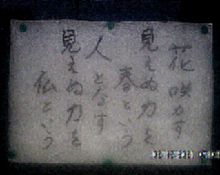 花咲かす
見えぬ力を
春という
人となす
見えぬ力を
仏という